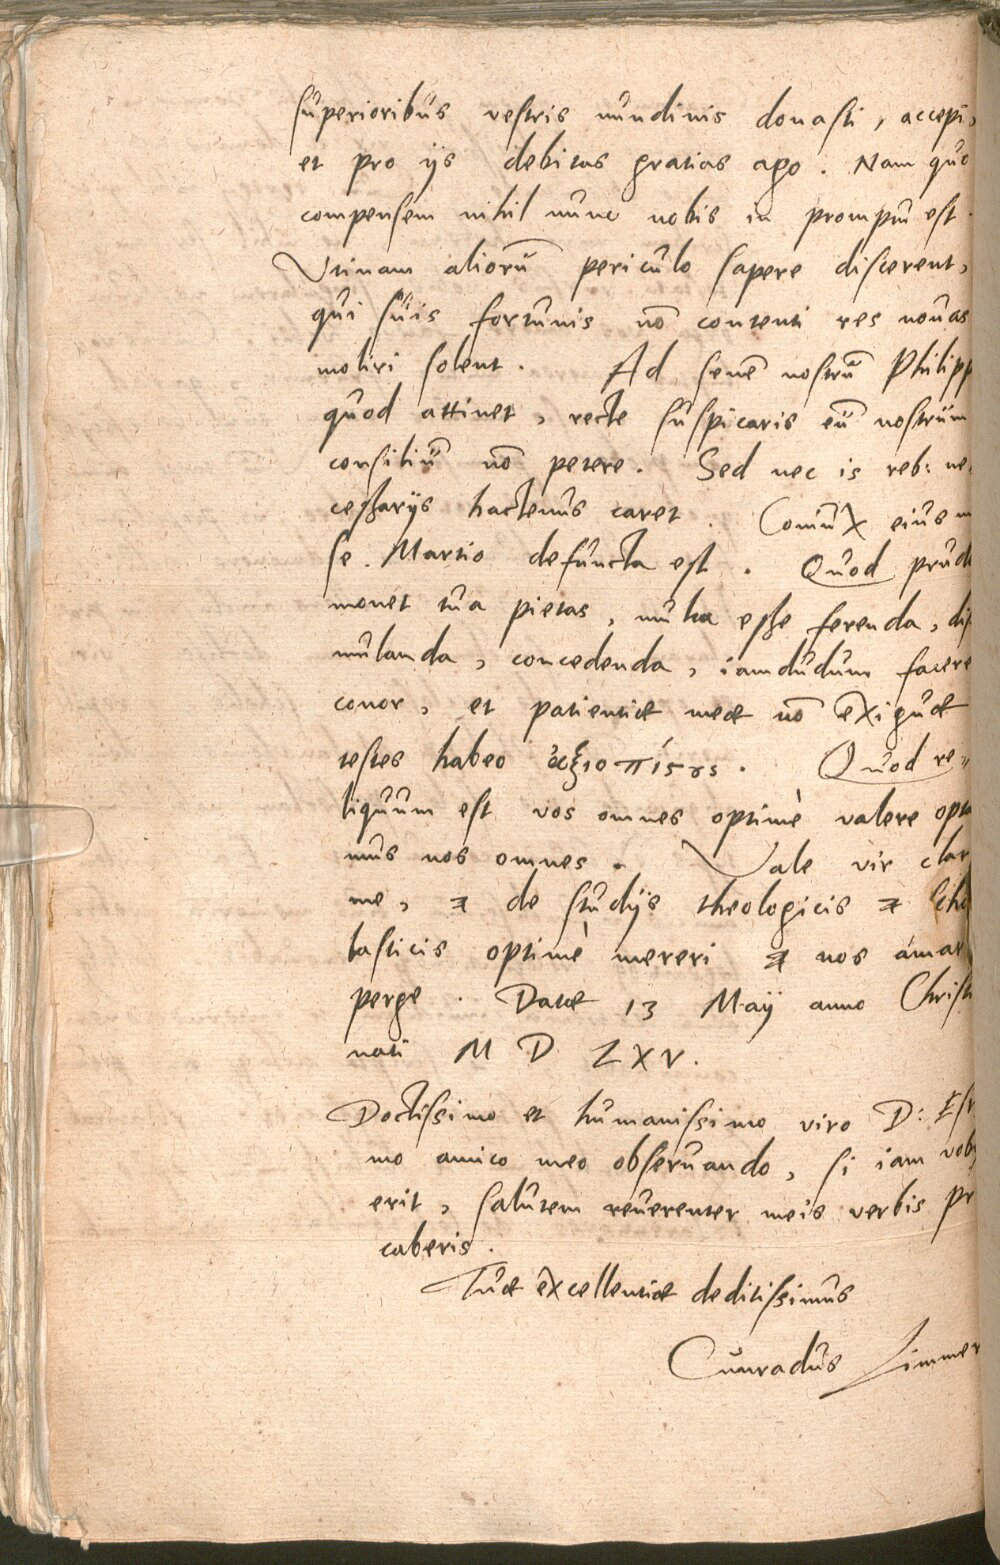 superioribus vestris nundinis donasti, accepi,
et pro ijs debitas gratias ago. Nam quo
compensem nihil nunc nobis in promptu est.
Vtinam alioru̅ periculo sapere discerent,
qui suis fortunis no̅ contenti res nouas
moliri solent. Ad sene̅ nostru̅ Philipp
quod attinet, recte suspicaris eu̅ nostrum
consiliu̅ no̅ petere. Sed nec is reb: ne
cessarijs hactenus caret. Coniux eius m
se Martio defuncta est. Quod prud
monet tua pietas, multa esse ferenda, dis
mulanda, concedenda, iamdudum facere
conor, et patientiæ meæ no̅ exiguæ
testes habeo ἀξιοπίσους. Quod re-
liquum est vos omnes optimè valere opta
mus nos omnes. Vale vir clar
me, & de studijs theologicis & scho
lasticis optimè mereri & nos amar
perge. Datæ 13 Maij anno Christi
nati M D LXV.
Doctissimo et humanissimo viro D: Esr
mo amico meo obseruando, si iam vob
erit, salutem reuerenter meis verbis pr
caberis.
Tuæ excellentiæ deditissimus
Cunradus Zimmer